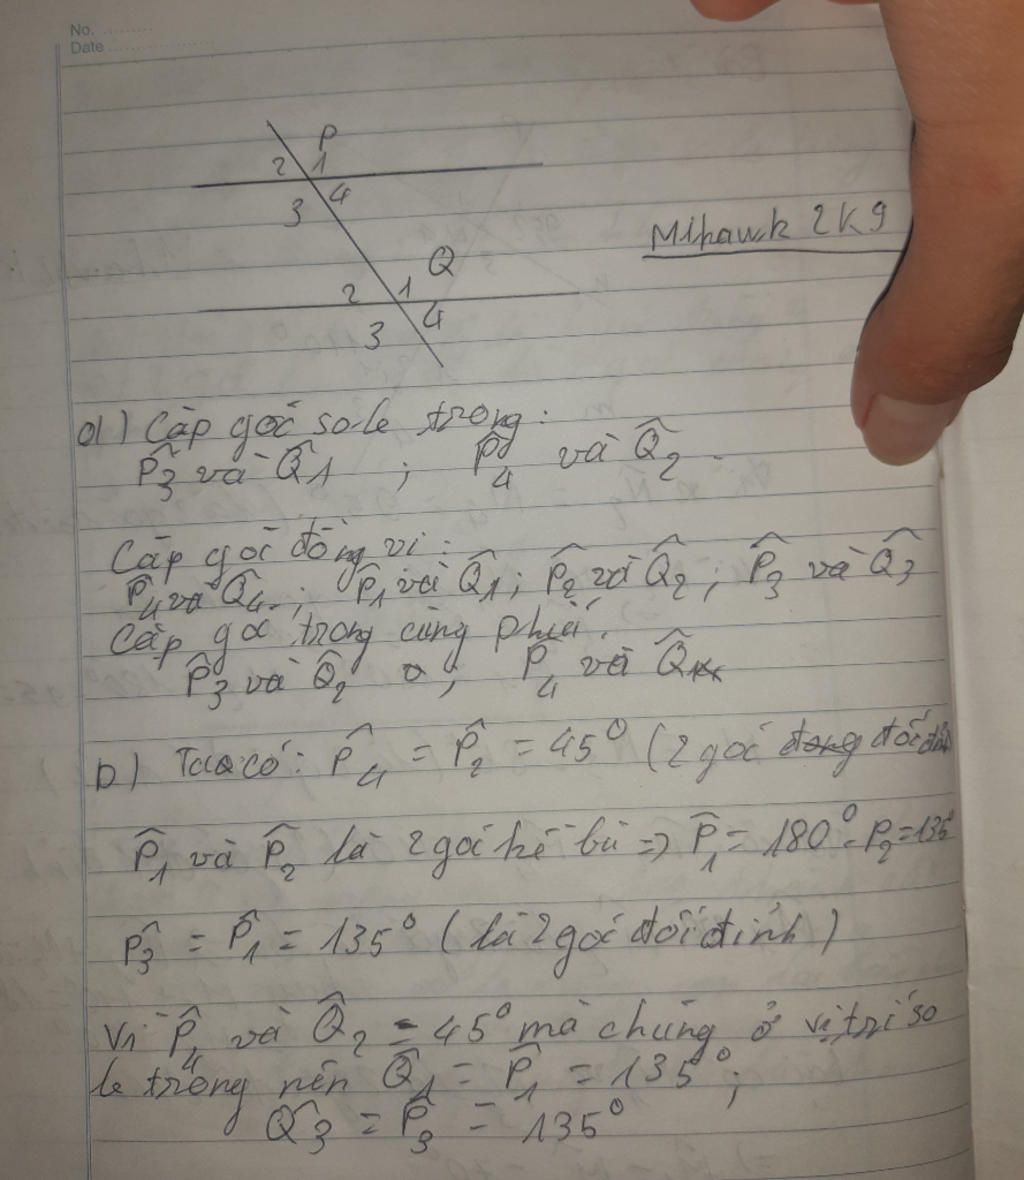 No.
Date
P
2 1
3 4
Q
2 1
3 4
Mihawk 2K9
a) Cặp góc so le trong:
P̂3 và Q̂1 ; P̂4 và Q̂2.
Cặp góc đồng vị:
P̂4 và Q̂4 ; P̂1 và Q̂1 ; P̂2 và Q̂2 ; P̂3 và Q̂3
Cặp góc trong cùng phía.
P̂3 và Q̂2 ; P̂4 và Q̂1
b) Ta có: P̂4 = P̂2 = 45° (2 góc đối đỉnh
P̂1 và P̂2 là 2 góc kề bù => P̂1 = 180° - P2 = 135°
P̂3 = P̂1 = 135° (là 2 góc đối đỉnh)
Vì P̂4 và Q̂2 = 45° mà chúng ở vị trí so
le trong nên Q̂1 = P̂1 = 135° ;
Q̂3 = P̂3 = 135°